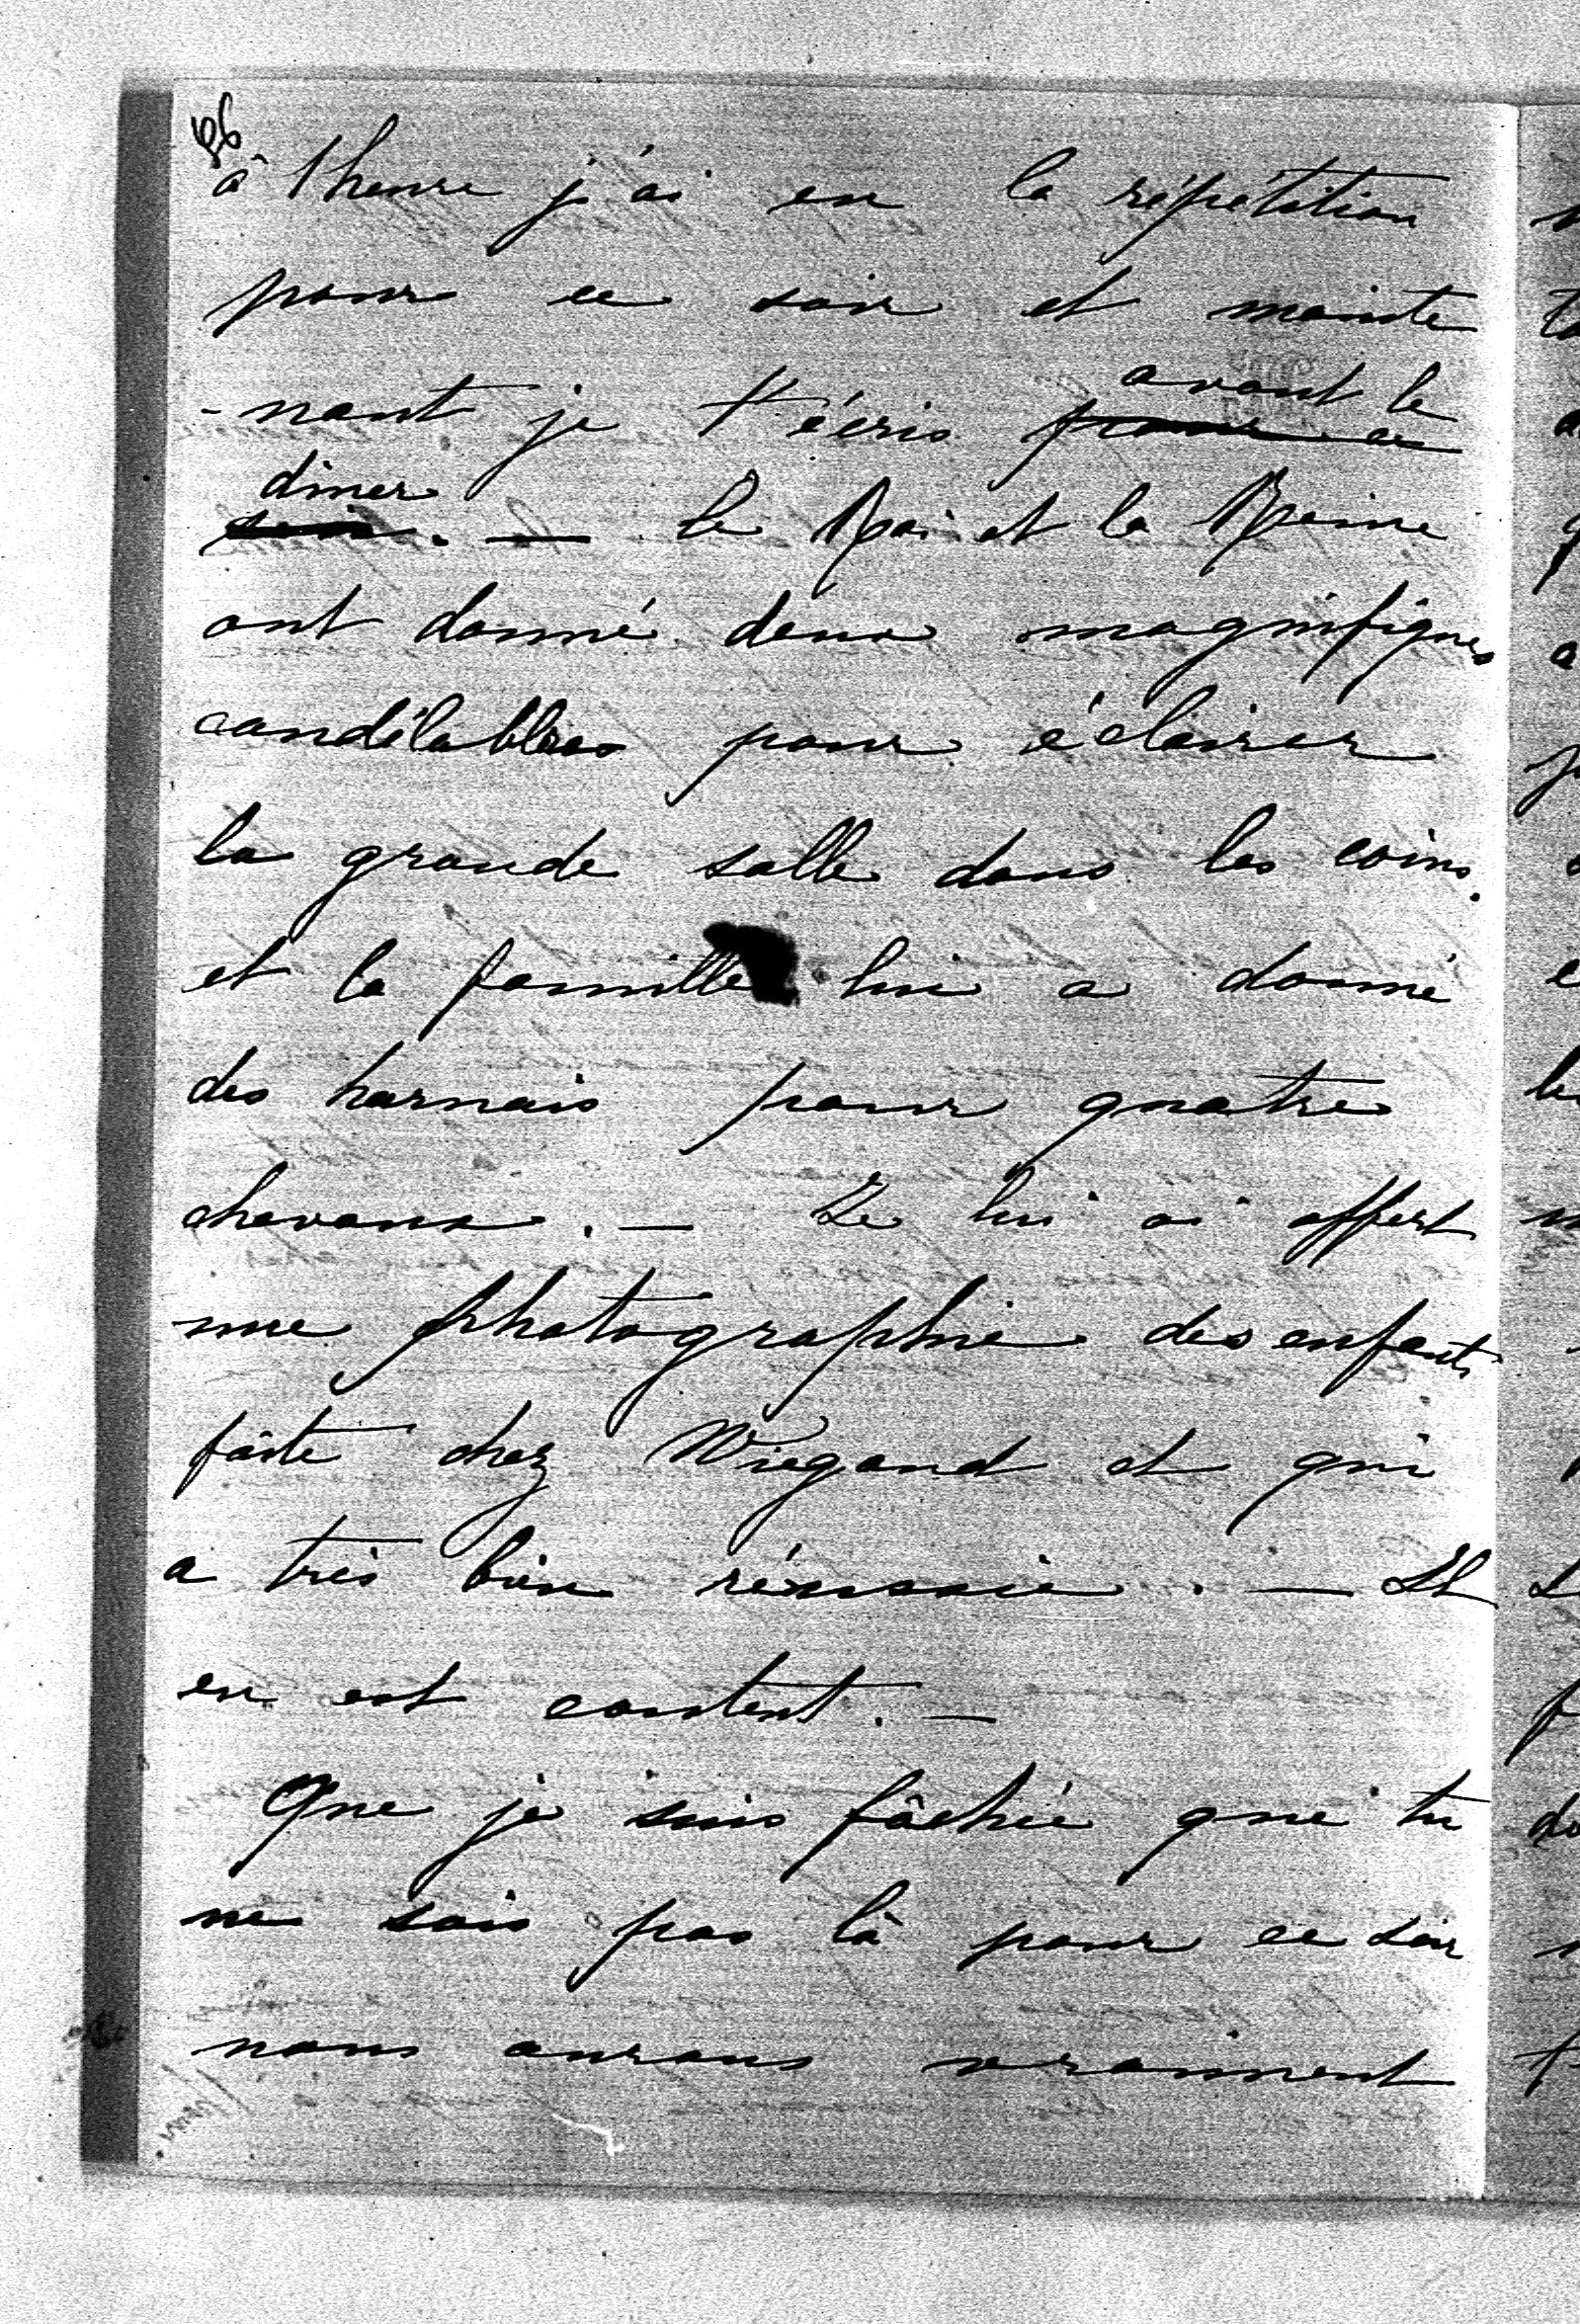 à 1 heure j'ai eu la répétition
pour ce soir et mainte
-nant je t'écris pour ce avant le
soir dîner. — Le Roi et la Reine
ont donné deux magnifiques
candélabres pour éclairer
la grande salle dans les coins.
et la famille lui a donné
des harnais pour quatre
chevaux. — Je lui ai offert
une photographie des enfants
faite chez Wiegand et qui
a très bien réussie. — Il
en est content. —
Que je suis fâchée que tu
ne sois pas là pour ce soir
nous aurons vraiment